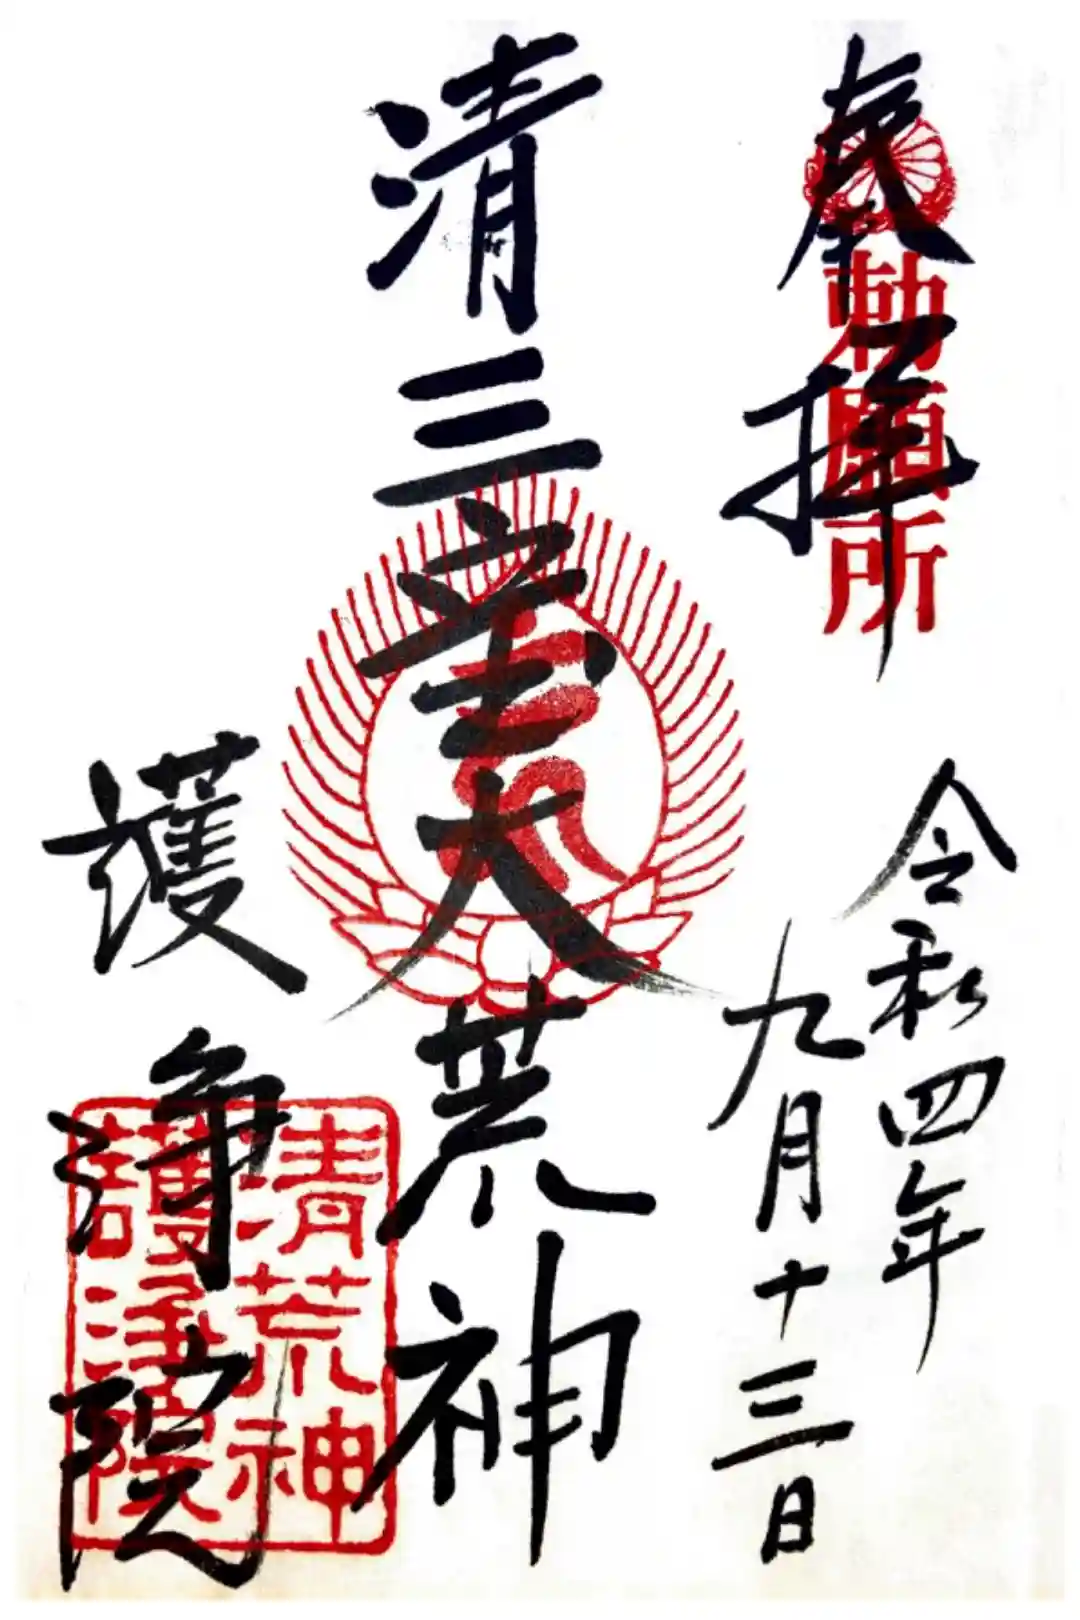 奉拝
勅願所
令和四年
九月十三日
清三宝大荒神
護浄院
清荒神
護浄院